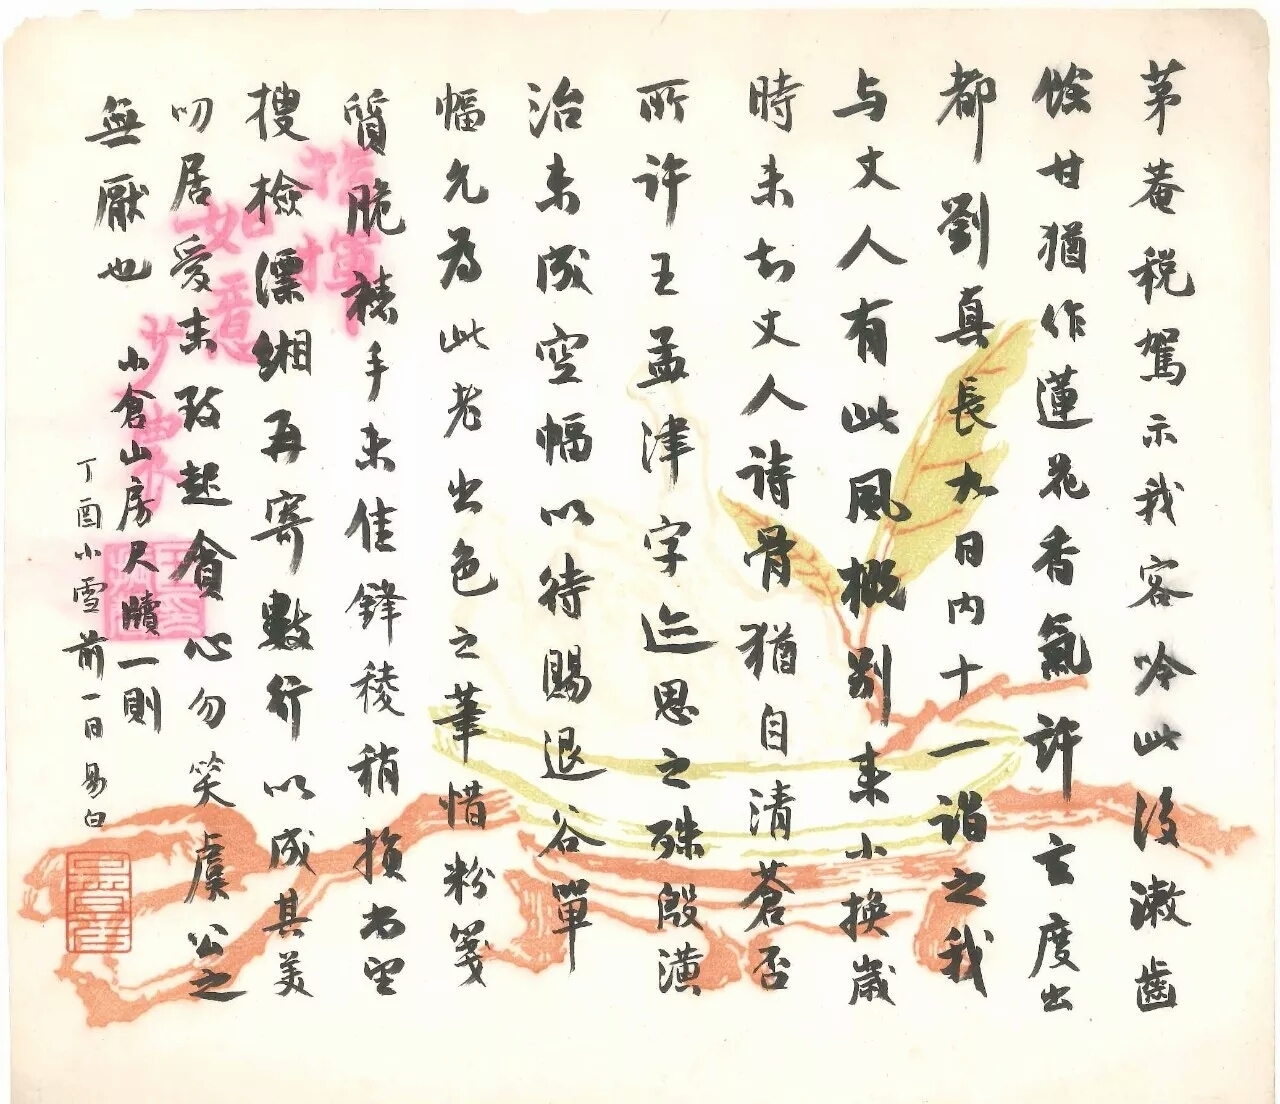 茅菴税駕示我客吟此後漱齒
餘甘猶作蓮花香氣許玄度出
都劉真長九日内十一詣之我
与丈人有此風概别来小换嵗
時未知丈人詩骨猶自清蒼否
所許王孟津字迹思之殊殷潢
治未成空幅以待賜退谷單
幅允為此老出色之筆惜粉箋
質脆裱手未佳鋒稜稍損尚望
搜檢漂緗再寄數行以成其美
叨居愛末致起貪心勿笑虞公之
無厭也
小倉山房尺牘一則
丁酉小雪前一日易白
指揮
如意